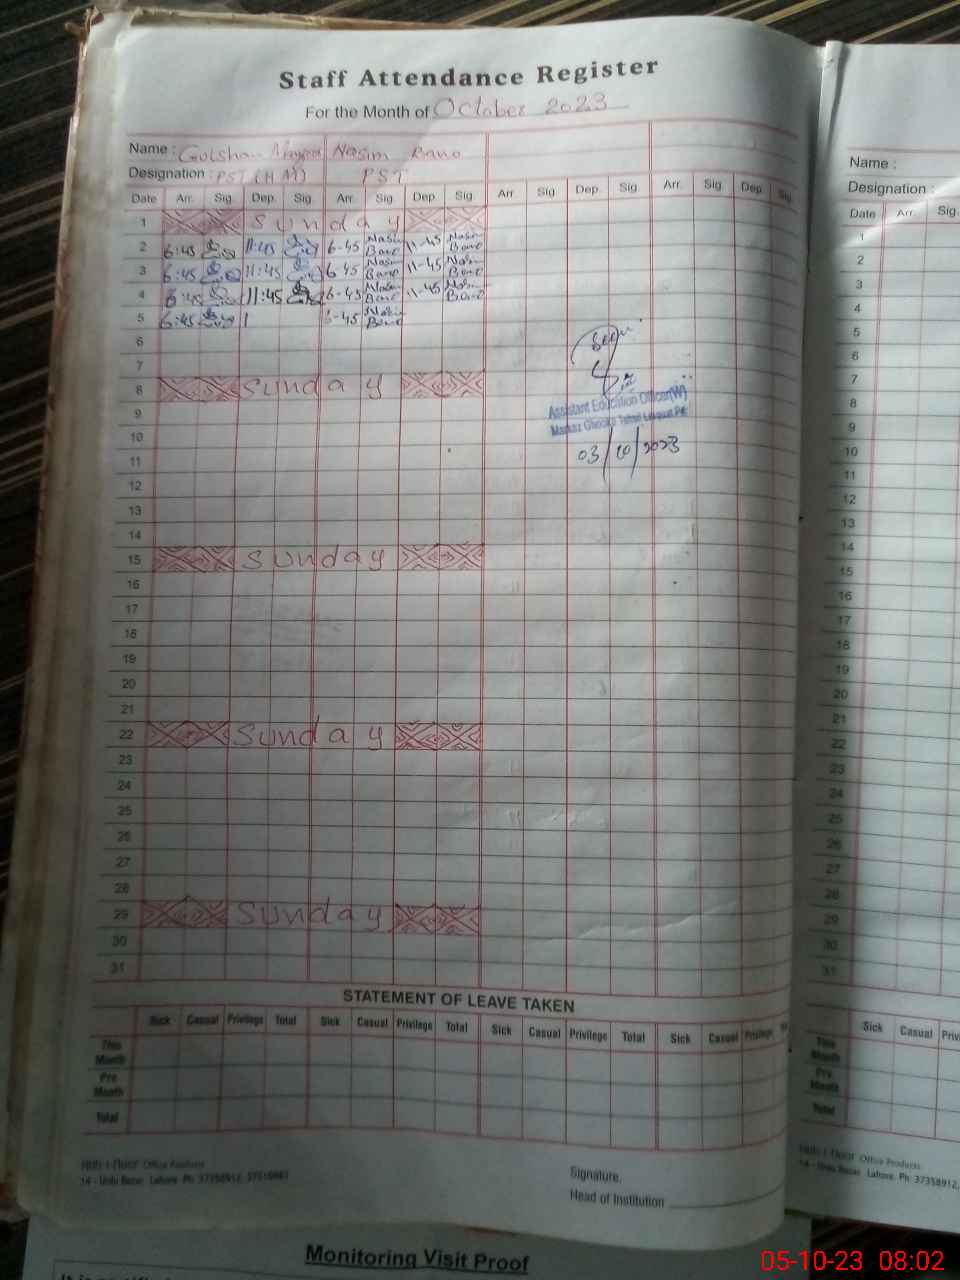 Staff Attendance Register
For the Month of October 2023
Name : Gulshan Nasim Bano
Designation : PST (H M) PST
Date Arr. Sig. Dep. Sig. Arr. Sig. Dep. Sig. Arr. Sig. Dep. Sig. Arr. Sig. Dep. Sig.
1 Sunday
2 6:45 11:45 6-45 Nasim Bano 11-45 Nasim Bano
3 6:45 11:45 6-45 Nasim Bano 11-45 Nasim Bano
4 6:45 11:45 6-45 Nasim Bano 11-45 Nasim Bano
5 6:45 6-45 Nasim Bano
6
7
8 Sunday
9
10
11
12
13
14
15 Sunday
16
17
18
19
20
21
22 Sunday
23
24
25
26
27
28
29 Sunday
30
31
Assistant Education Officer(W)
Markaz
03/10/2023
STATEMENT OF LEAVE TAKEN
Sick Casual Privilege Total Sick Casual Privilege Total Sick Casual Privilege Total Sick Casual Privilege
This Month
Pre Month
Total
Office Products
14 - Urdu Bazar Lahore Ph: 37358912,
Signature.
Head of Institution
Name :
Designation :
Date Arr. Sig.
1
2
3
4
5
6
7
8
9
10
11
12
13
14
15
16
17
18
19
20
21
22
23
24
25
26
27
28
29
30
31
Sick Casual
This Month
Pre Month
Total
Office Products
14 - Urdu Bazar Lahore Ph: 37358912,
Monitoring Visit Proof
05-10-23 08:02